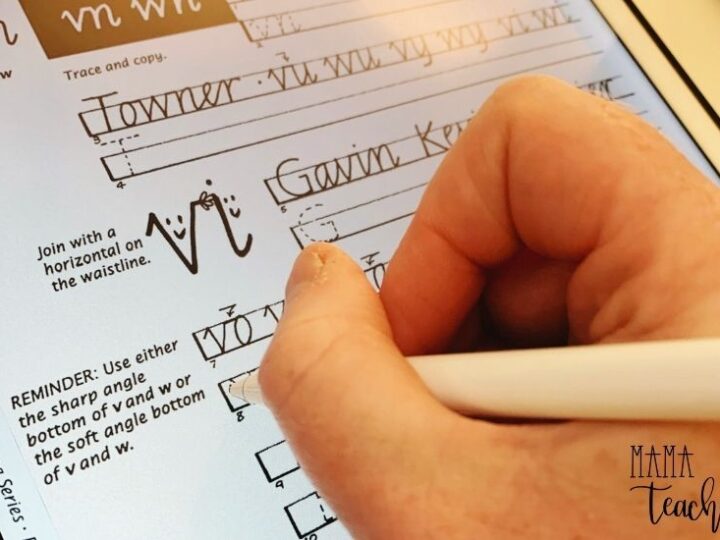 vn wn
Trace and copy.
Towner · vu wu vy wy vi wi
5
4
Gavin
5
Join with a
horizontal on
the waistline.
vi
vo
7
REMINDER: Use either
the sharp angle
bottom of v and w or
the soft angle bottom
of v and w.
8
9
Series ·
MAMA
Teach